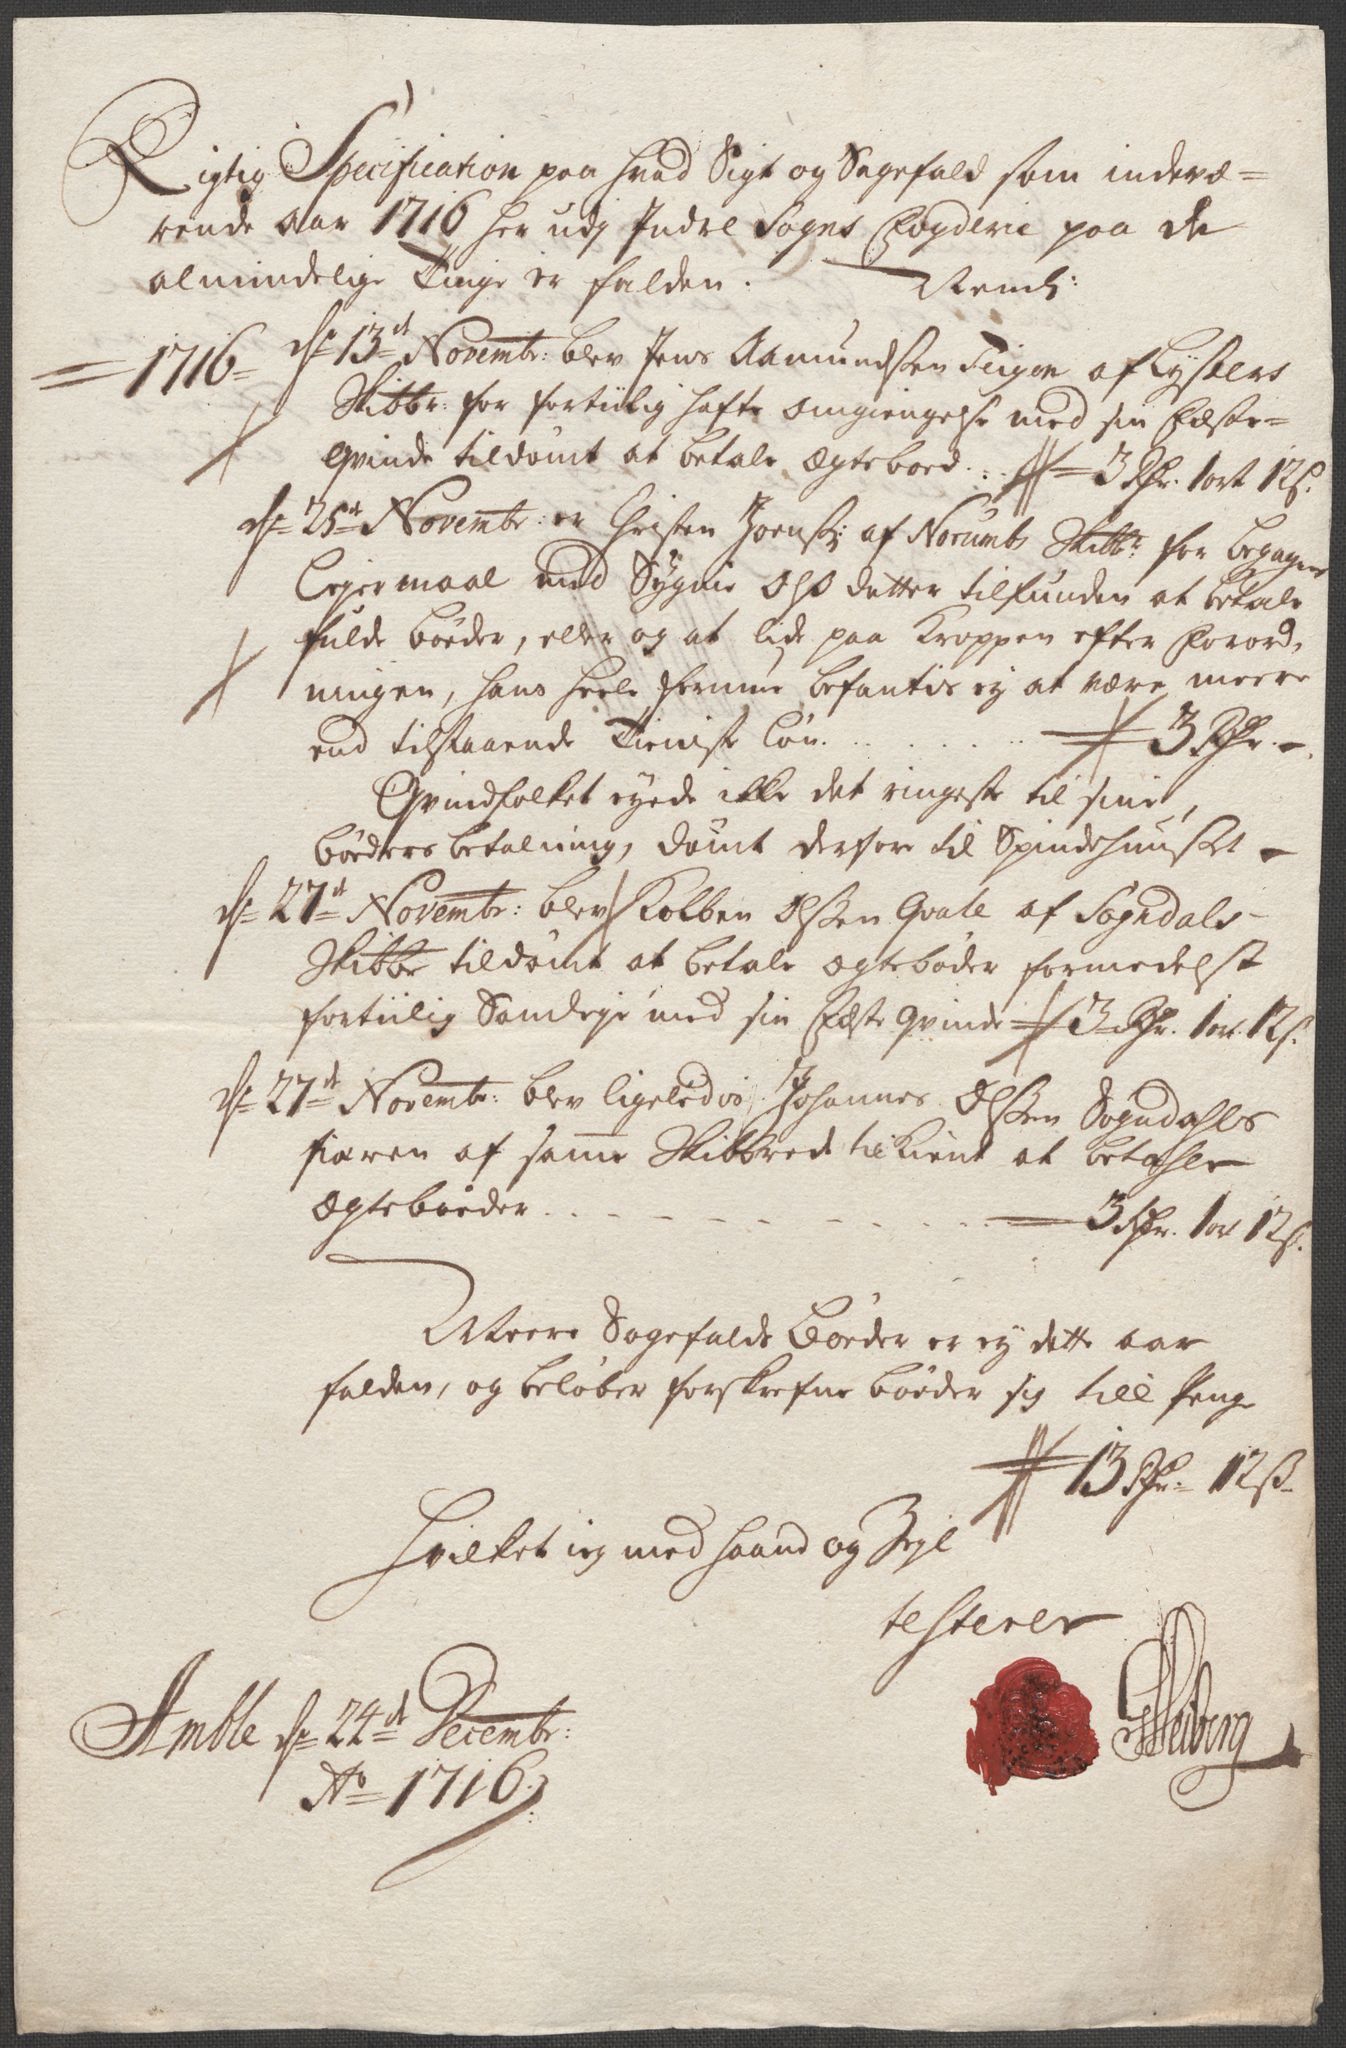 Rigtig Specification paa hvad Sigt og Sagefald som indevæ=
rende aar 1716 her udj Indre Sogns Fogderie paa de
almindelige Tinge er falden. Nemlig:
1716 = dn 13de Novembr: blev Jens Aamundsen Teigen af Lysters
Skibbr: for fortiilig hafte omgiengelse med sin Fæste=
qvinde tildømt at betale Ægtebøed .. 3 Rdr. 1 ort 12 s.
dn 25de Novembr: er Christen Joenss: af Norumbs Skibbr: for begagne
Leyermaal med Sygnie Ols datter tilfunden at betale
fulde bøeder, eller og at lide paa Kroppen efter Forord,
ningen, hans heele formue befantis ey at være meere
end tilstaaende Tieniste Løn ........ 3 Rdr. -.
Qvindfolket eyede ikke det ringeste til sine
bøeders betalning, dømt derfore til Spindehuuset -
dn 27de Novembr: blev Kolben Olssen Qvale af Sogndals-
Skibbr tildømt at betale ægtebøder formedelst
fortiilig Samleye med sin Fæste Qvinde 3 Rdr. 1 ort 12 s.
dn 27de Novembr: blev ligeledis Johannes Olssen Sogndahls
fiæren af samme Skibbrede tilkient at betahle
Ægtebøeder ........ 3 Rdr. 1 ort 12 s.
Meere Sagefalds Bøeder er ey dette aar
falden, og beløber forskrefne bøeder sig till Penge
13 Rdr = 12 ß
Hvilket ieg med haand og Zegl
testerer
Amble dn 24de Decembr:
Ao 1716